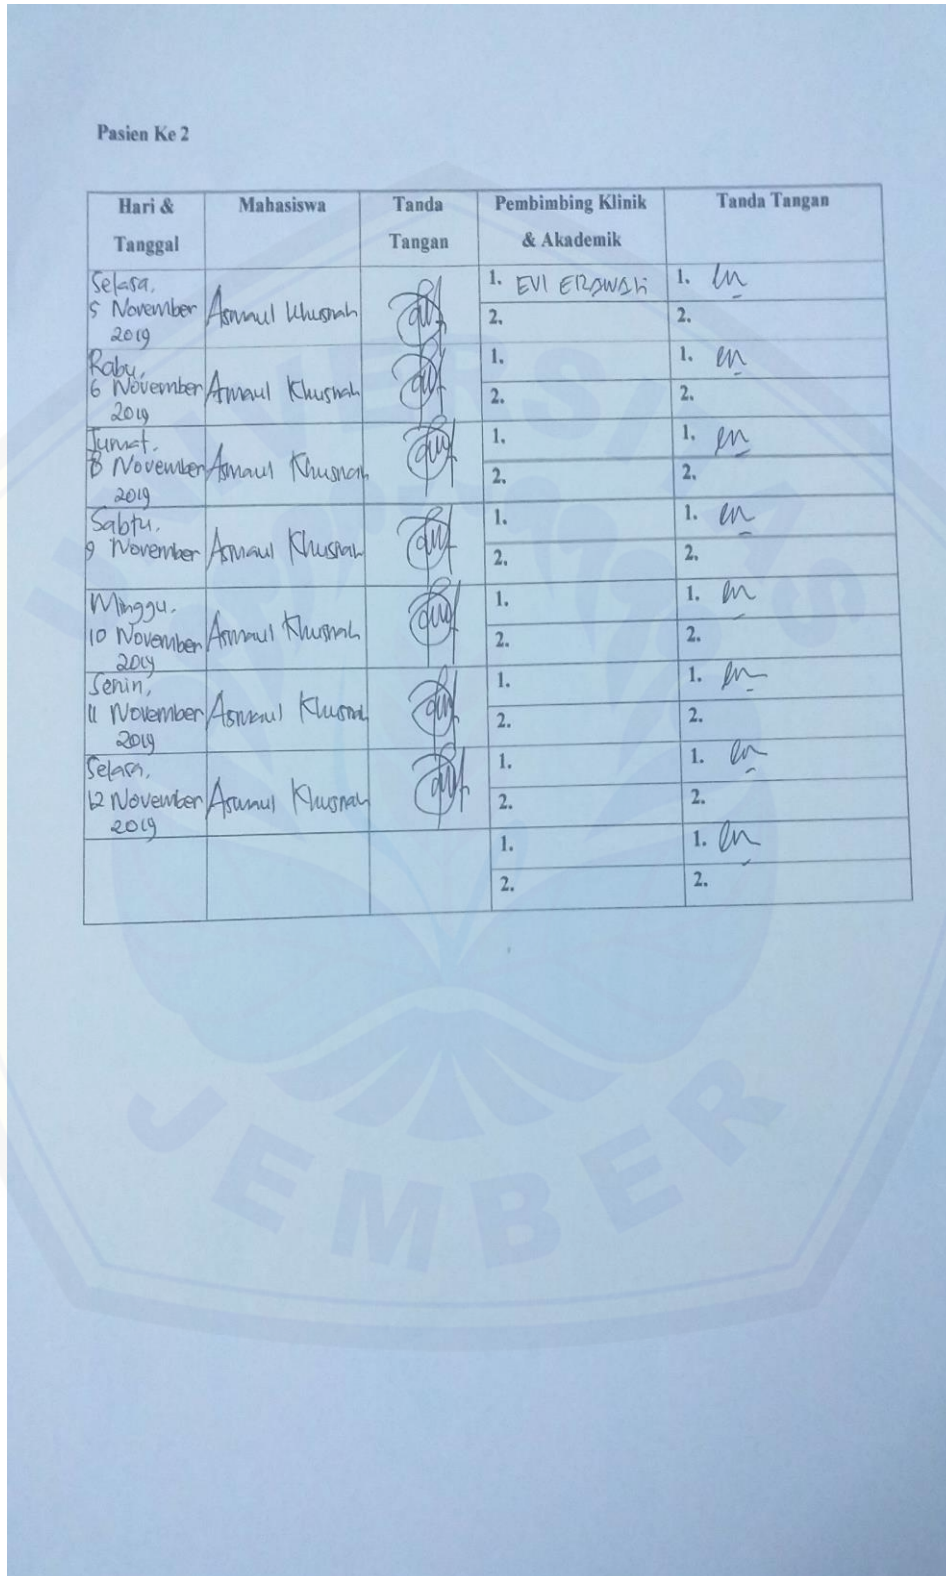 Pasien Ke 2
Hari & Tanggal Mahasiswa Tanda Tangan Pembimbing Klinik & Akademik Tanda Tangan
Selasa, 5 November 2019 Asmaul Khusnah 1. EVI ERAWATI 1.
2. 2.
Rabu, 6 November 2019 Asmaul Khusnah 1. 1.
2. 2.
Jumat, 8 November 2019 Asmaul Khusnah 1. 1.
2. 2.
Sabtu, 9 November Asmaul Khusnah 1. 1.
2. 2.
Minggu, 10 November 2019 Asmaul Khusnah 1. 1.
2. 2.
Senin, 11 November 2019 Asmaul Khusnah 1. 1.
2. 2.
Selasa, 12 November 2019 Asmaul Khusnah 1. 1.
2. 2.
1. 1.
2. 2.
UNIVERSITAS
JEMBER